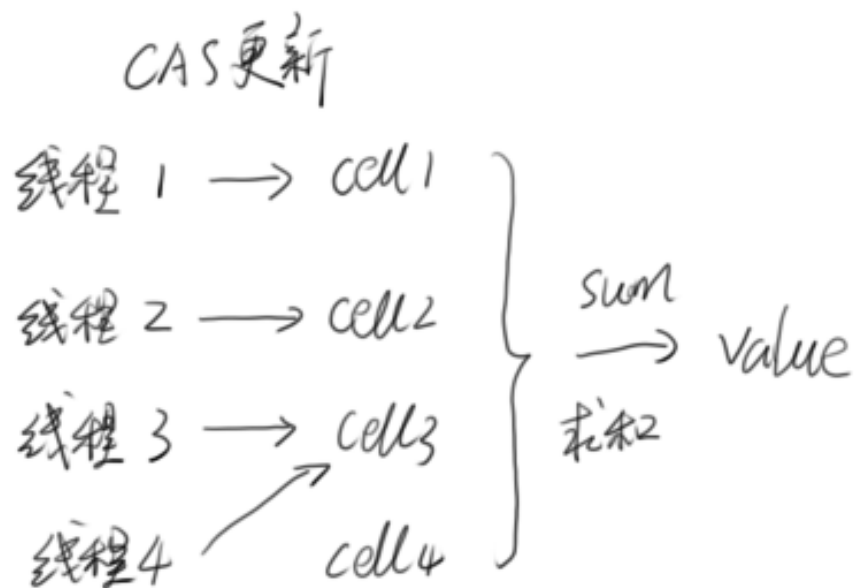 CAS更新
线程 1 → cell1
线程 2 → cell2
线程 3 → cell3
线程4 cell4
sum
→ value
求和